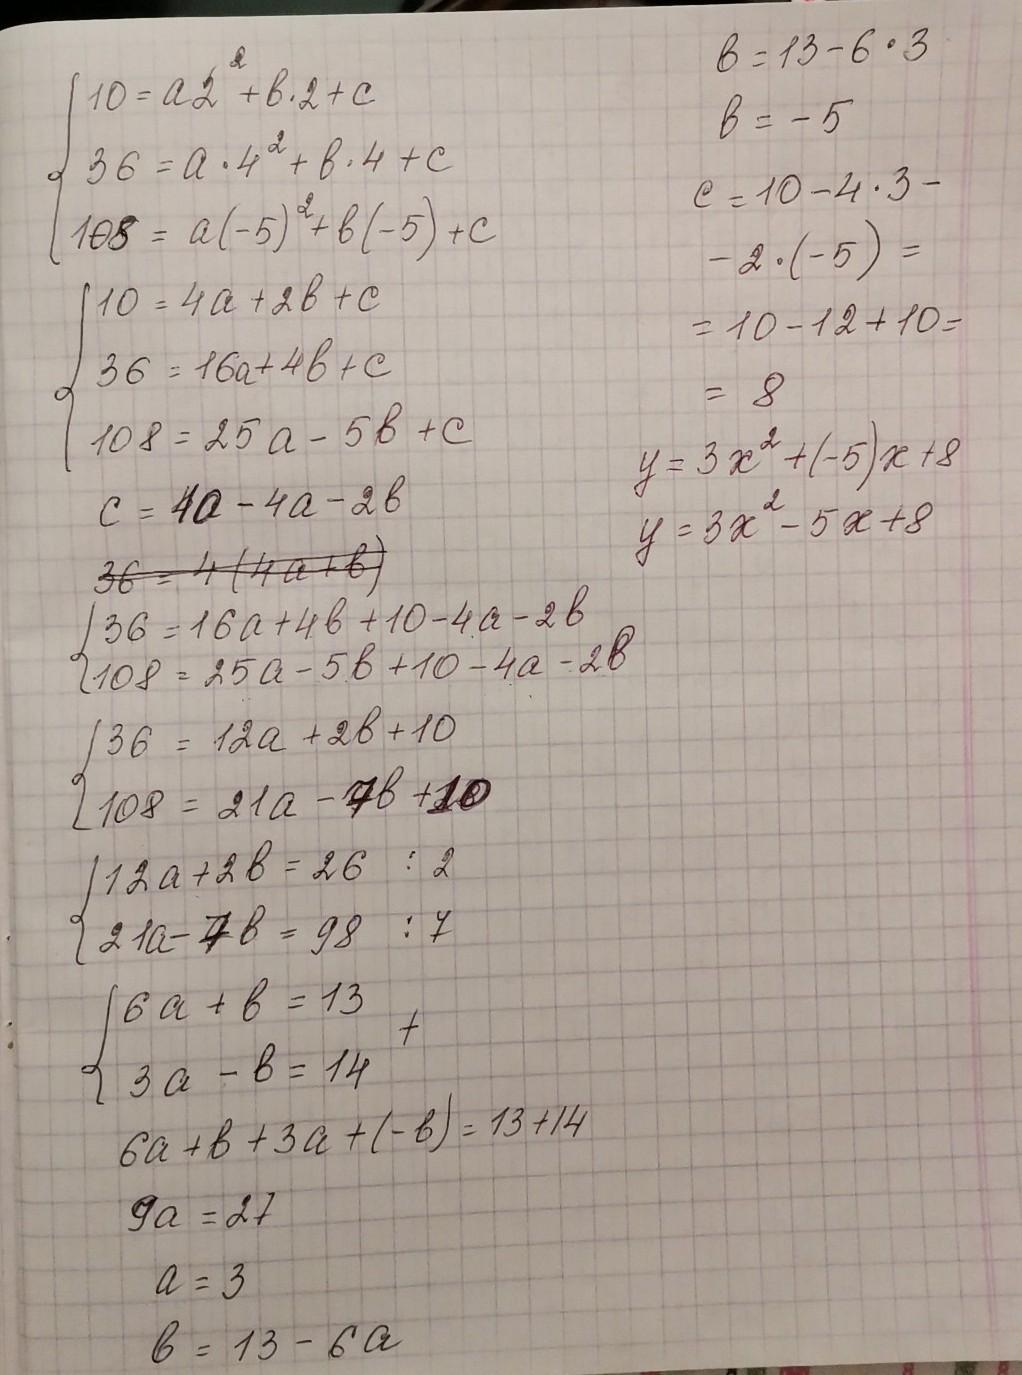 10 = a2² + b·2 + c
36 = a·4² + b·4 + c
108 = a(-5)² + b(-5) + c
10 = 4a + 2b + c
36 = 16a + 4b + c
108 = 25a - 5b + c
c = 10 - 4a - 2b
36 = 4(4a + b)
36 = 16a + 4b + 10 - 4a - 2b
108 = 25a - 5b + 10 - 4a - 2b
36 = 12a + 2b + 10
108 = 21a - 7b + 10
12a + 2b = 26 : 2
21a - 7b = 98 : 7
6a + b = 13
+
3a - b = 14
6a + b + 3a + (-b) = 13 + 14
9a = 27
a = 3
b = 13 - 6a
b = 13 - 6·3
b = -5
c = 10 - 4·3 -
- 2·(-5) =
= 10 - 12 + 10 =
= 8
y = 3x² + (-5)x + 8
y = 3x² - 5x + 8